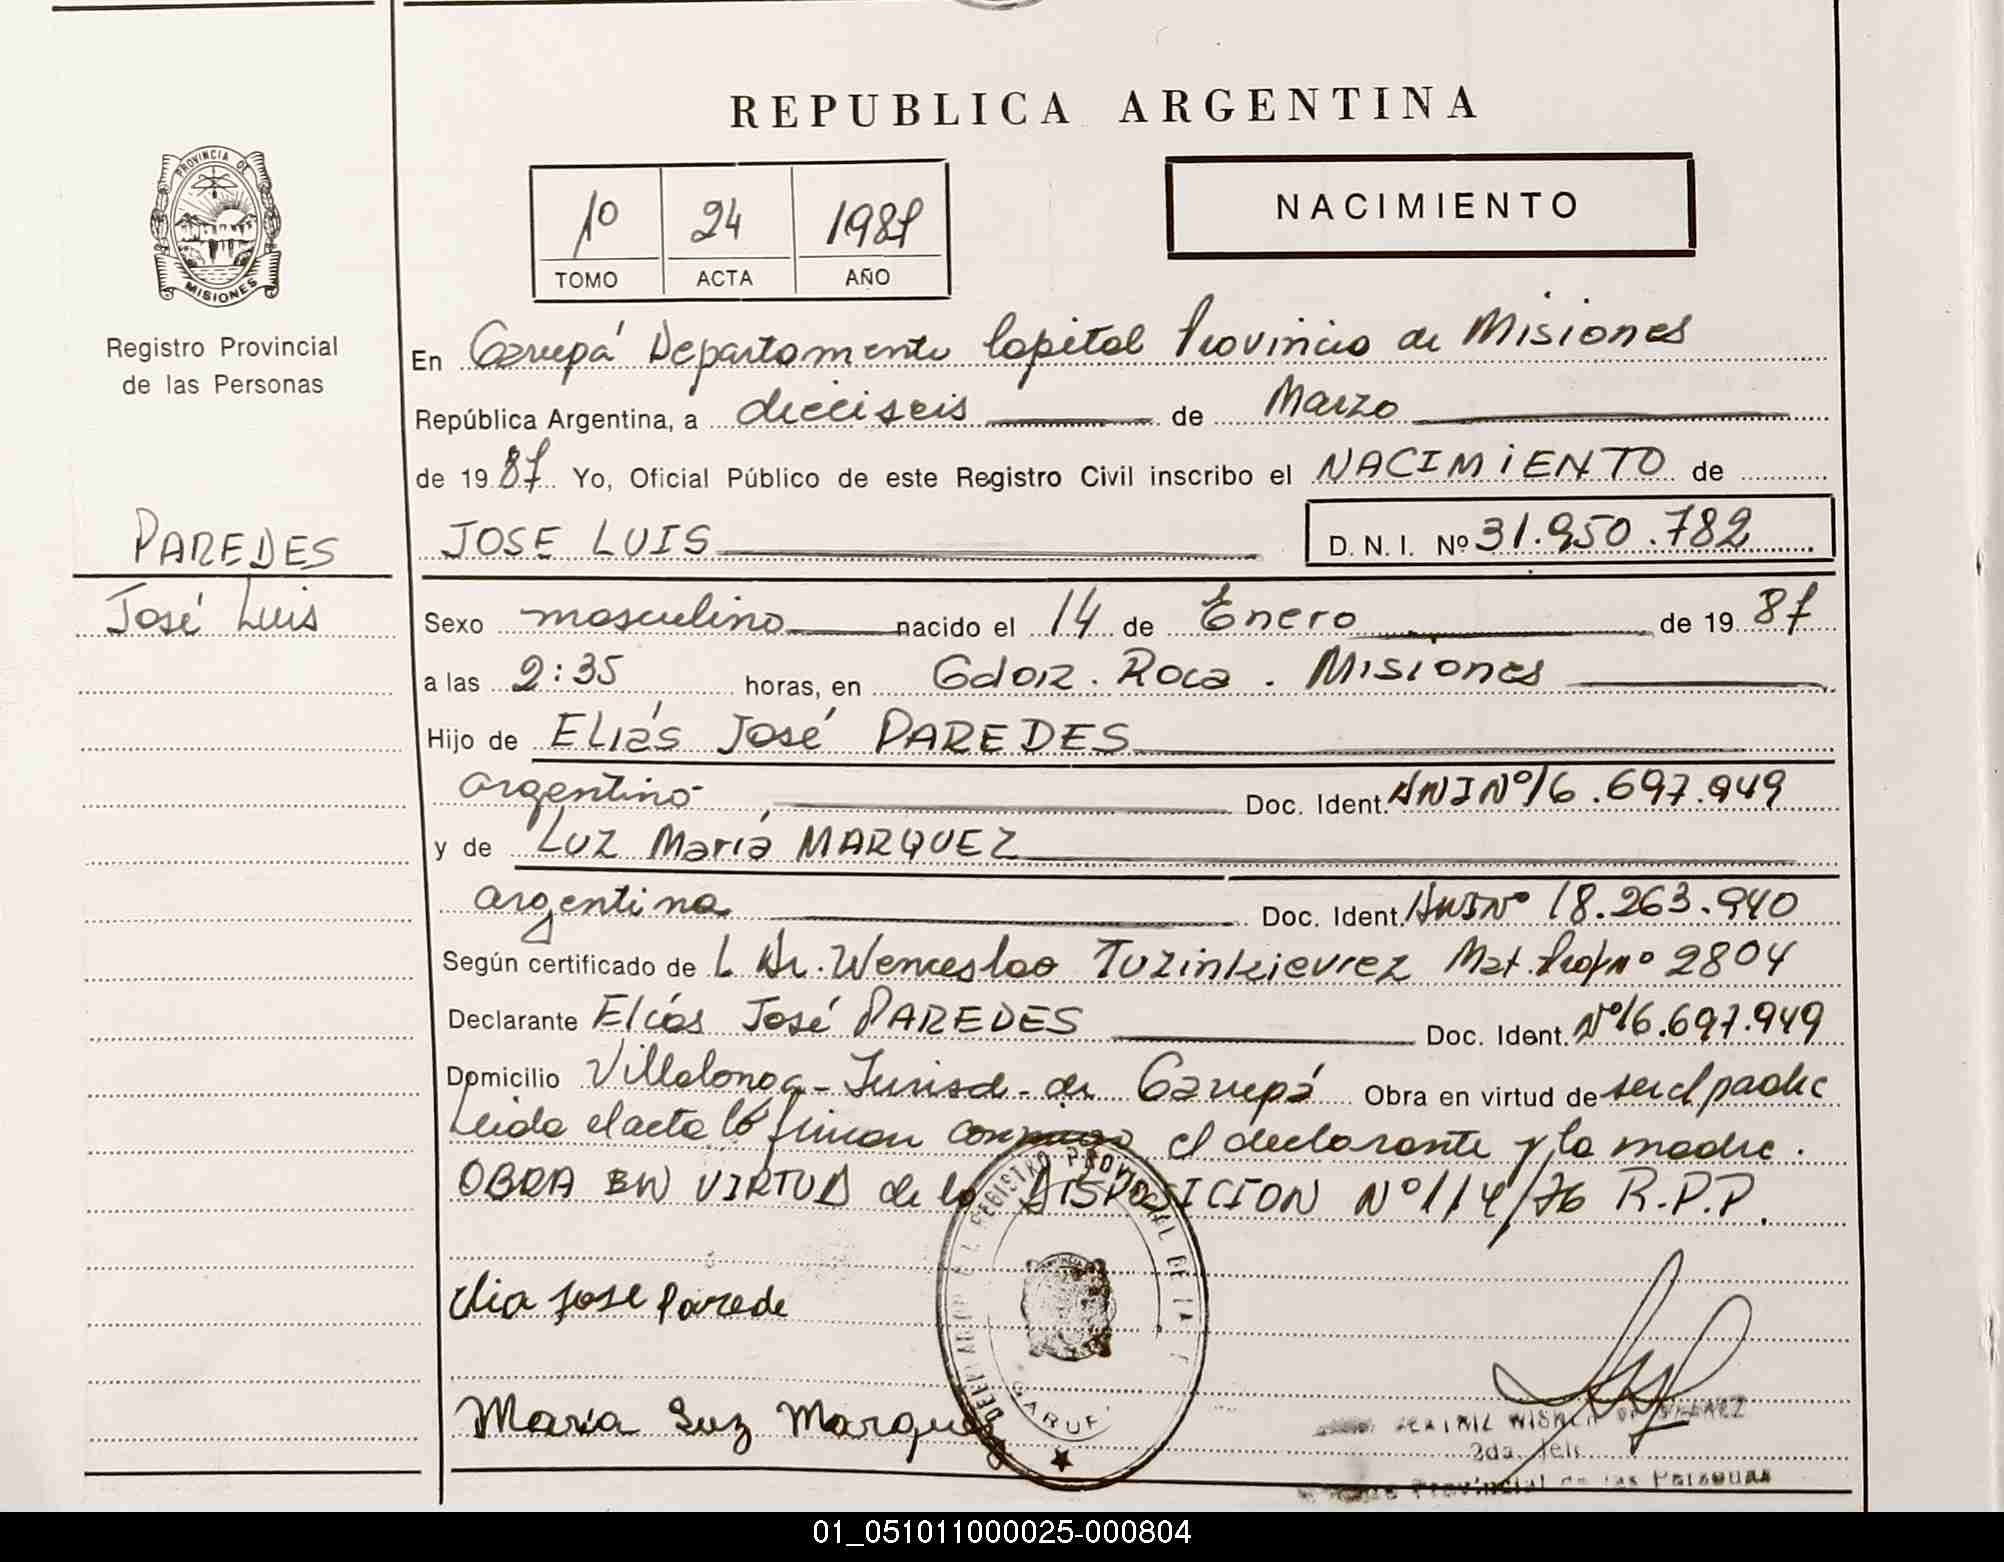 REPUBLICA ARGENTINA
PROVINCIA DE
MISIONES
Registro Provincial
de las Personas
1º 24 1987
TOMO ACTA AÑO
NACIMIENTO
En Garupá Departamento Capital Provincia de Misiones
República Argentina, a dieciseis de Marzo
de 1987 Yo, Oficial Público de este Registro Civil inscribo el NACIMIENTO de
PAREDES
José Luis
JOSE LUIS D. N. I. Nº 31.950.782
Sexo masculino nacido el 14 de Enero de 1987
a las 2:35 horas, en Gdor. Roca. Misiones
Hijo de Eliás José PAREDES
argentino Doc. Ident. DNI Nº 16.697.949
y de Luz María MARQUEZ
argentina Doc. Ident. DNI Nº 18.263.940
Según certificado de Dr. Wenceslao Mat. Prof Nº 2804
Declarante Elías José PAREDES Doc. Ident. Nº 16.697.949
Domicilio Villalonga - Jurisd. de Garupá Obra en virtud de ser el padre
Leída el acta lo firman conmigo el declarante y la madre.
OBRA EN VIRTUD de la DISPOSICION Nº 114/76 R.P.P.
REGISTRO PROVINCIAL DE LA
Elia jose Parede
Maria Luz Marquez
GARUP
2da. Jefe
Provincial de las Personas
01_051011000025-000804